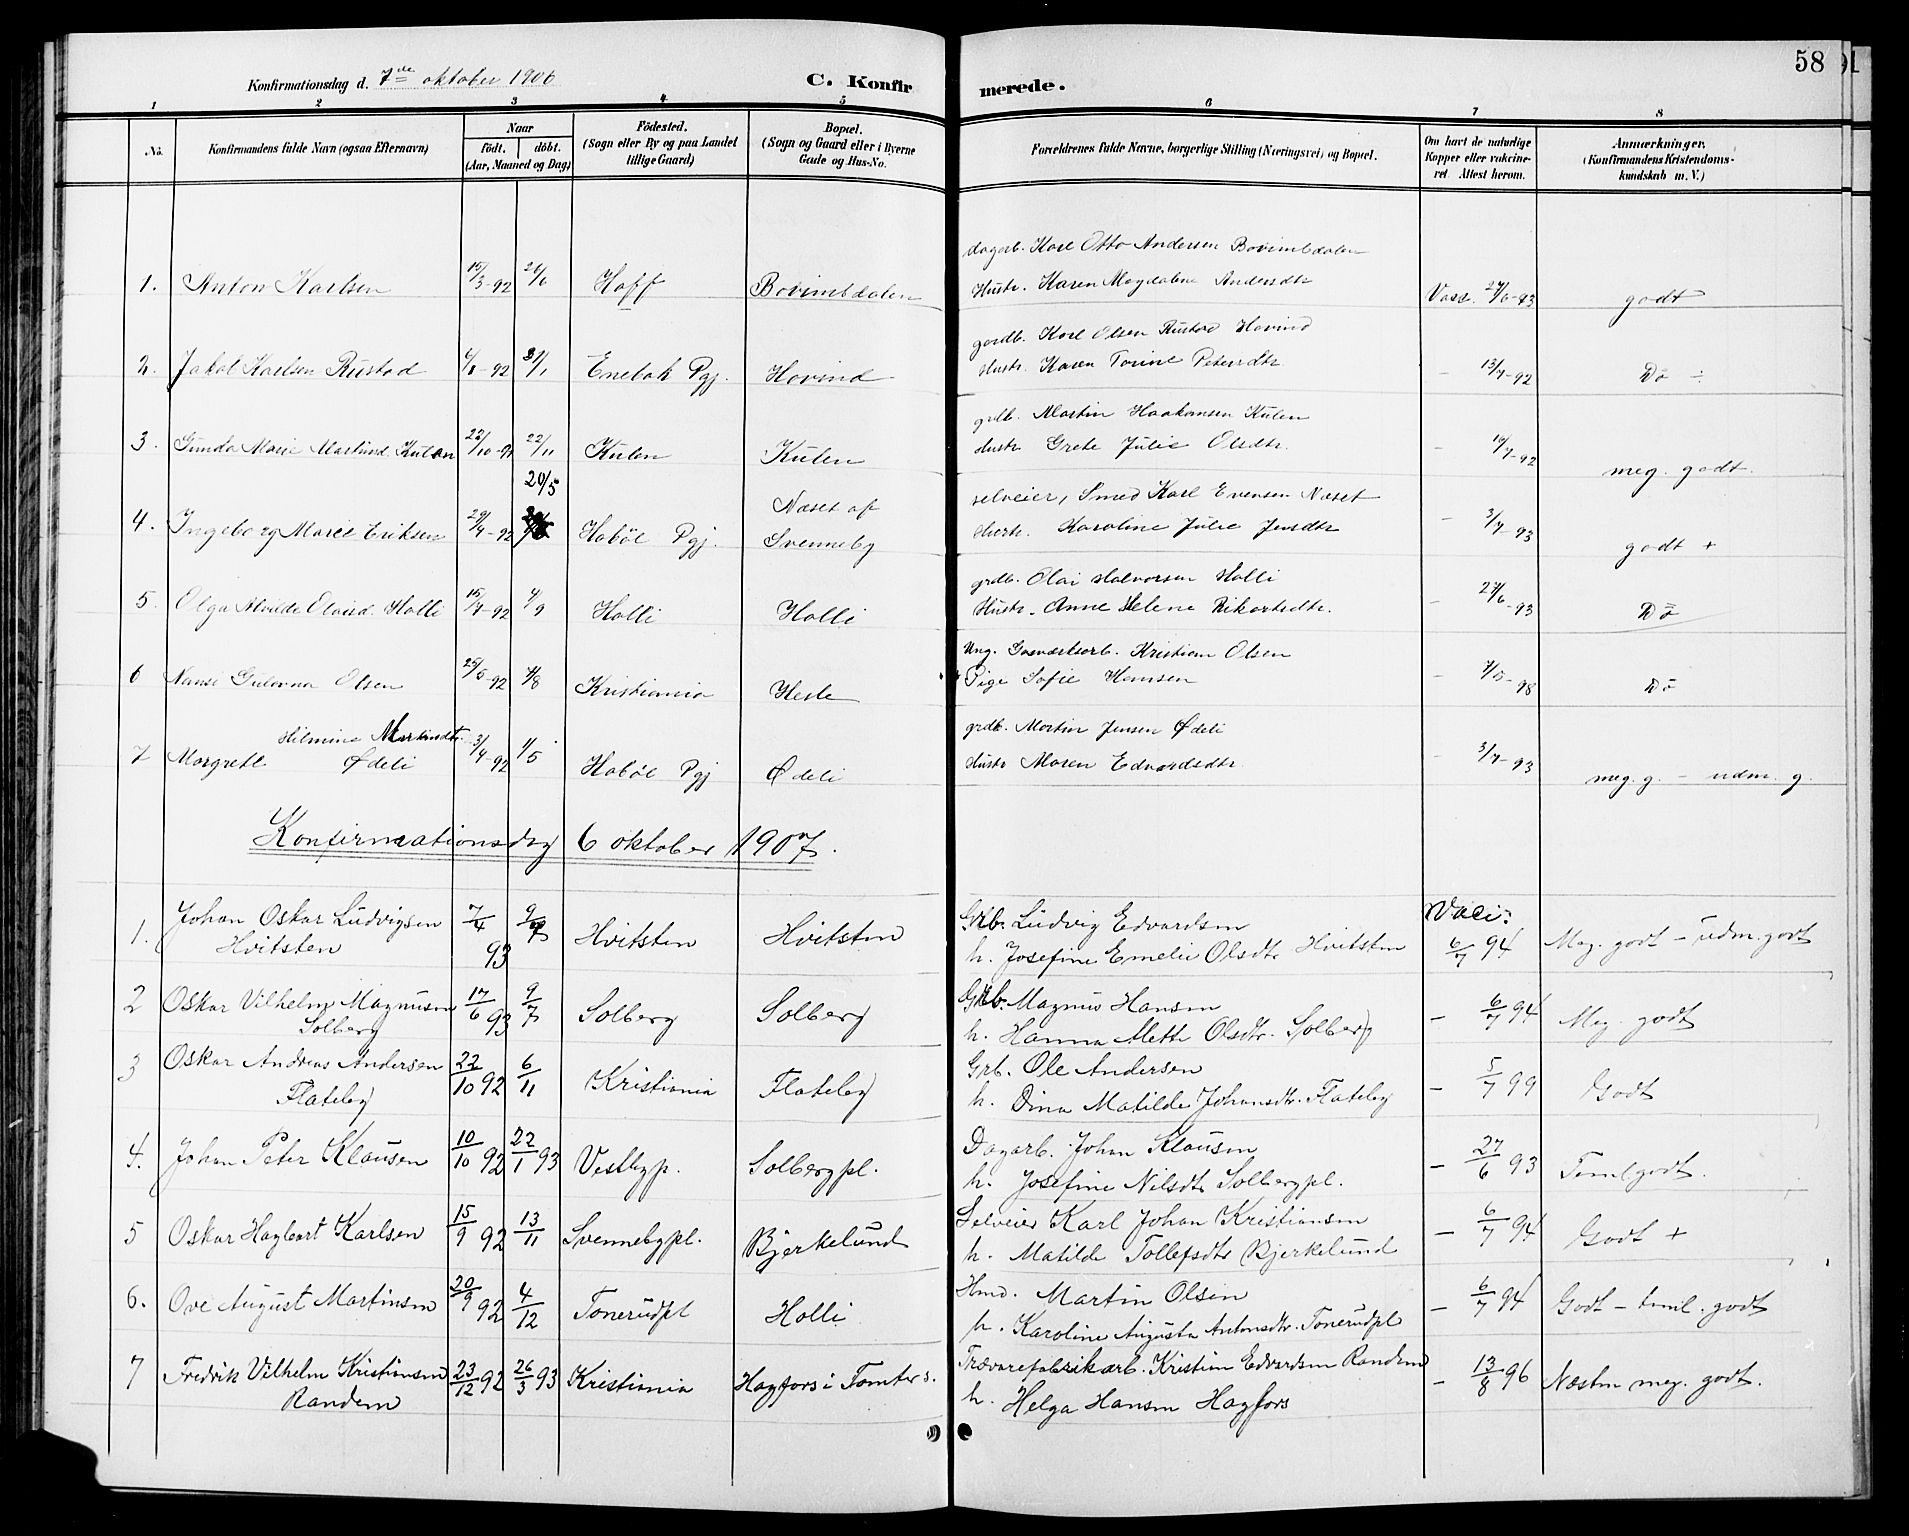 58
Konfirmationsdag d. 7de oktober 1906 C. Konfirmerede.
1 2 3 4 5 6 7 8
No. Konfirmandens fulde Navn (ogsaa Efternavn) Naar født. døbt. (Aar, Maaned og Dag) Fødested. (Sogn eller By og paa Landet tillige Gaard) Bopæl. (Sogn og Gaard eller i Byerne Gade og Hus-No. Forældrenes fulde Navne, borgerlige Stilling (Næringsvei) og Bopæl. Om havt de naturlige Kopper eller vaccineret. Attest herom. Anmærkninger. (Konfirmandens Kristendomskundskab m. V.)
dagarb. Karl Otto Andersen Bovimbdalen
1. Anton Karlsen 15/3-92 26/6 Haff Bovimbdalen Hustr. Karen Magdalene Andersdtr Vacc. 27/6-93 godt
gardb. Karl Olsen Rustad Hovind
2. Jakob Karlsen Rustad 6/1-92 31/1 Enebak Pgj. Hovind Hustr. Karen Torine Petersdtr - 13/7-92 Do ÷
grdb. Martin Haakonsen Kulen
3. Gunda Marie Martind. Kulen 22/10-91 22/11 Kulen Kulen Hustr Grete Julie Olsdtr. - 19/7-92 meg. godt.
20/5 Næset af selveier, Smed Karl Evensen Næset
4. Ingeborg Marie Eriksen 29/4-92 Hobøl Pgj. Svenneby Hustr. Karoline Julie Jensdtr - 3/7-93 godt +
grdb. Olai Halvorsen Holli
5. Olga Alvilde Olaisd. Holli 15/7-92 4/9 Holli Holli Hustr. Anne Helene Rikartsdtr. - 27/6-93 Do
Ung. Gasværksarb. Kristian Olsen
6 Nansi Gulovna Olsen 25/5-92 7/8 Kristiania Hesle Pige Sofie Hansen - 7/5-98 Do
Hilmine Martinsdtr. grdb. Martin Jensen Ødeli
7 Margrete Ødeli 3/4-92 1/5 Hobøl Pgj Ødeli Hustr Maren Edvardsdtr. - 3/7-93 meg. g. - udm. g.
Konfirmationsdag 6 oktober 1907.
Johan Oskar Ludvigsen 7/4 9/7 Grb. Ludvig Edvardsen Vacc:
1. Hvitsten 93 Hvitsten Hvitsten h. Josefine Emelie Olsdtr Hvitsten 6/7 94 Meg. godt - udm. godt
2 Oskar Vilhelm Magnusen 17/6 93 9/7 Solberg Solberg Grb. Magnus Hansen - 6/7 94 Meg. godt
Solberg h. Hanna Mette Olsdtr. Solberg
3 Oskar Andreas Andersen 22/10 92 6/11 Kristiania Flateby Grb. Ole Andersen - 5/7 99 Godt
Flateby h. Dina Matilde Johansdtr. Flateby
4. Johan Peter Klausen 10/10 92 22/1 93 Vestbyp. Solbergpl. Dagarb. Johan Klausen - 27/6 93 Temil godt.
h. Josefine Nilsdtr Solbergpl.
5 Oskar Hagbart Karlsen 15/9 92 13/11 Svennebypl. Bjerkelund Selveier Karl Johan Kristiansen - 6/7 94 Godt +
h. Matilde Tollefsdtr Bjerkelund
6. Ove August Martinsen 20/9 92 4/12 Tonerudpl Holli Hmd. Martin Olsen - 6/7 94 Godt - temil. godt
h. Karoline Augusta Antonsdtr. Tonerudpl
7 Fredrik Vilhelm Kristiansen 23/12 92 26/3 93 Kristiania Hagfors i Tomter s. Trævarefabrikarb. Kristian Edvardsen Randem - 13/8 96 Næsten meg. godt.
Randem h. Helga Hansen Hagfors